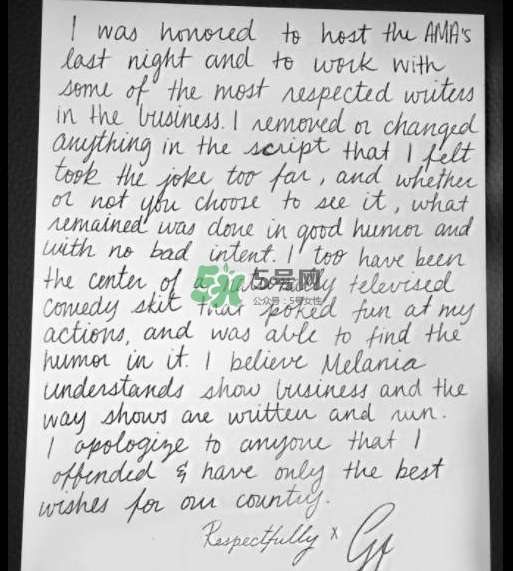 I was honored to host the AMA's
last night and to work with
some of the most respected writers
in the business. I removed or changed
anything in the script that I felt
took the joke too far, and whether
or not you choose to see it, what
remained was done in good humor and
with no bad intent. I too have been
the center of a televised
comedy skit that poked fun at my
actions, and was able to find the
humor in it. I believe Melania
understands show business and the
way shows are written and run.
I apologize to anyone that I
offended & have only the best
wishes for our country.
Respectfully x
5k 5号网
公众号:5号女性